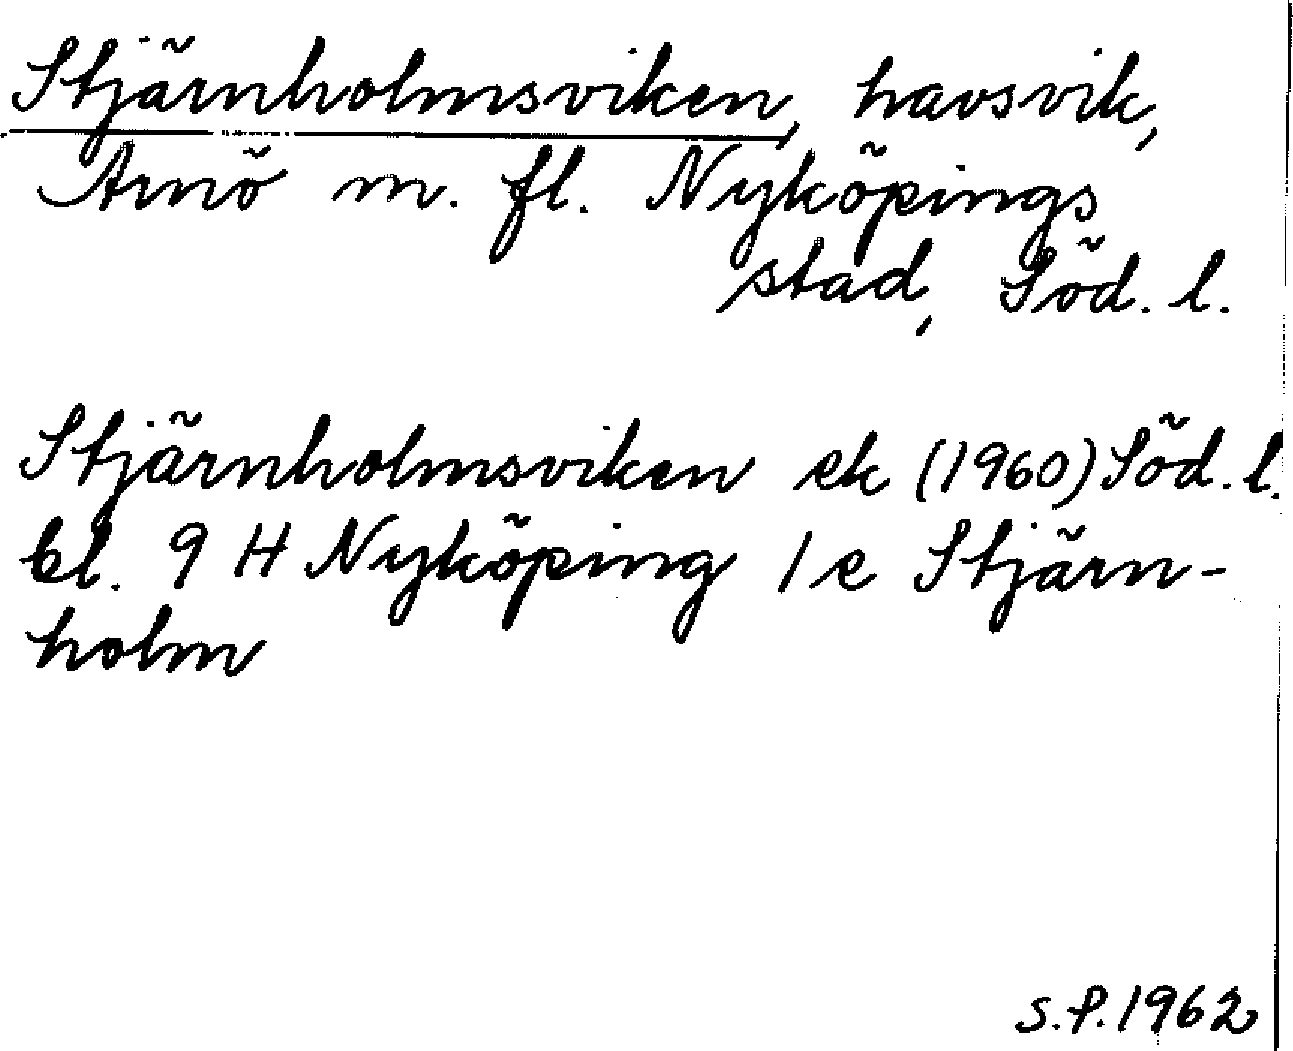 Stjärnholmsviken, havsvik,
Arnö m. fl. Nyköpings
stad, Söd. l.
Stjärnholmsviken ek (1960) Söd. l.
bl. 9 H Nyköping 1 e Stjärn-
holm
S.P. 1962